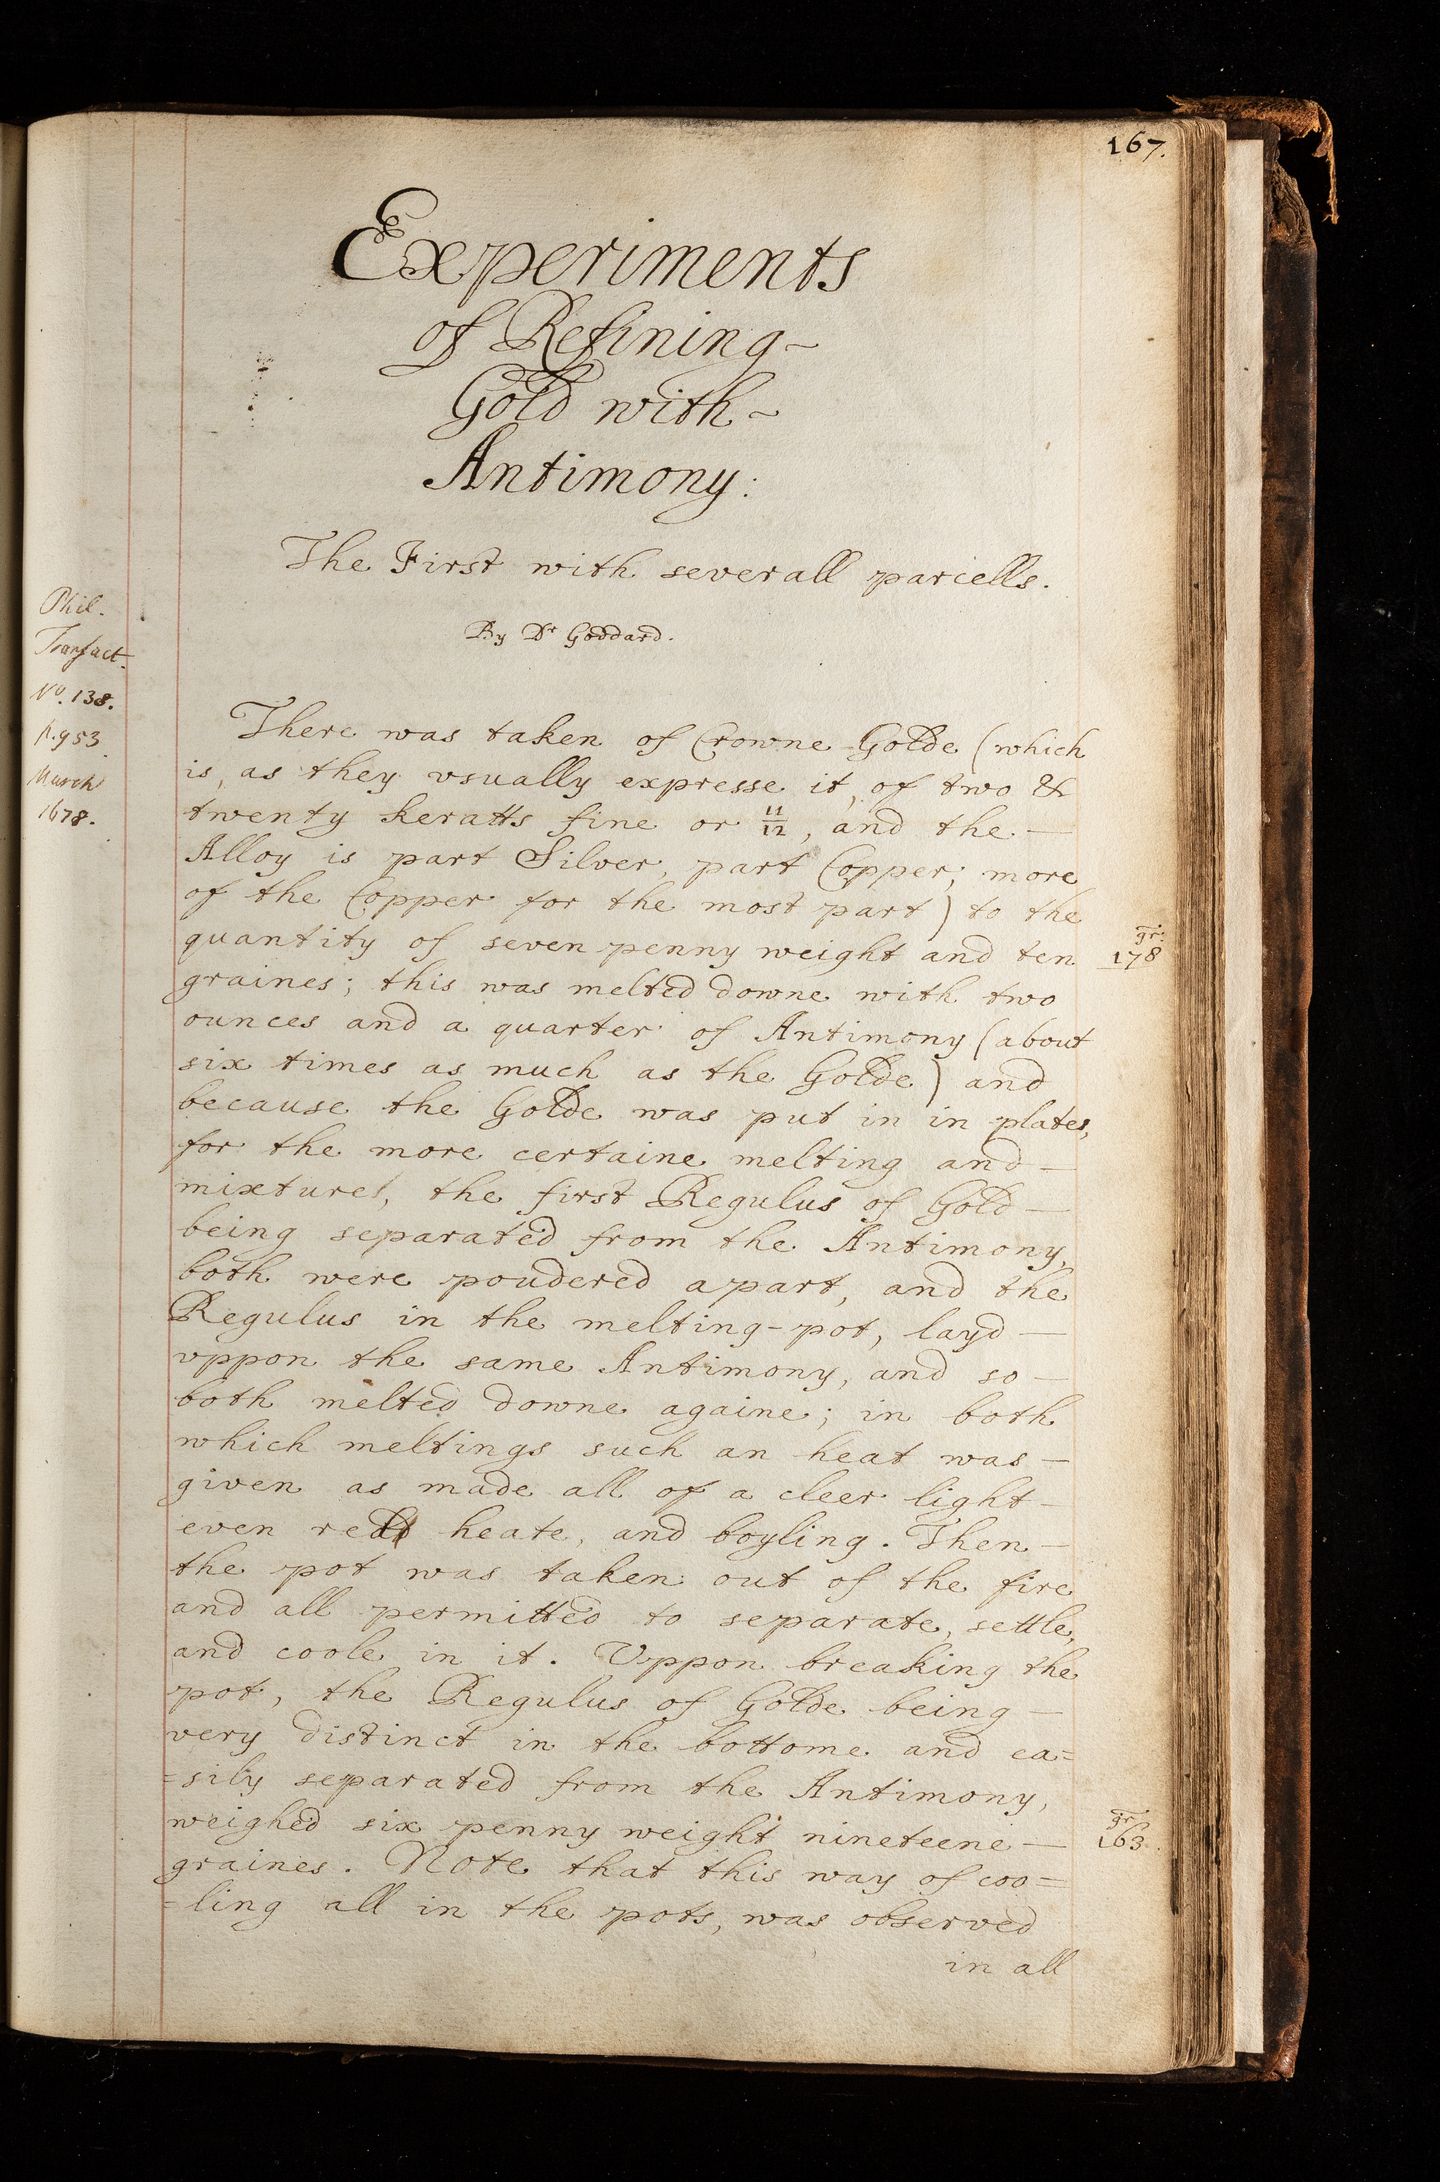 167.
Experiments
of Refining-
Gold with-
Antimony:
The First with severall parcells.
By Dr Goddard.
Phil.
Transact.
No. 138.
p. 953
March
1678.
There was taken of Crowne-Golde (which
is, as they vsually expresse it, of two &
twenty keratts fine or 11/12, and the-
Alloy is part Silver, part Copper; more
of the Copper for the most part) to the
quantity of seven penny weight and ten
gr:
178
graines; this was melted downe with two
ounces and a quarter of Antimony (about
six times as much as the Golde) and
because the Golde was put in in plates,
for the more certaine melting and-
mixture, the first Regulus of Gold-
being separated from the Antimony,
both were poudered apart, and the
Regulus in the melting-pot, layd-
vppon the same Antimony, and so-
both melted downe againe; in both
which meltings such an heat was-
given as made all of a cleer light-
even red heate, and boyling. Then-
the pot was taken out of the fire
and all permitted to separate, settle,
and coole in it. Vppon breaking the
pot, the Regulus of Golde being-
very distinct in the bottome and ea=
=sily separated from the Antimony,
weighed six penny weight nineteene-
gr.
163.
graines. Note that this way of coo=
=ling all in the pots, was observed
in all